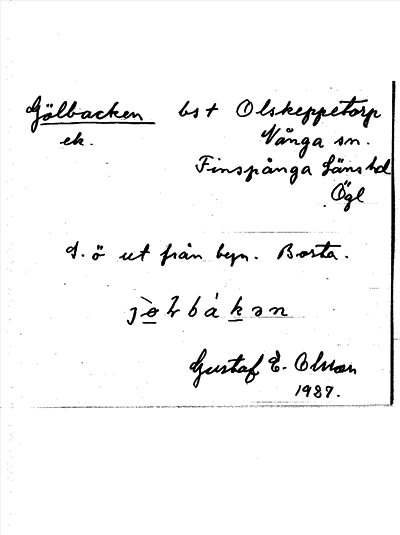 Gölbacken bst Olskeppetorp
ek. Vånga sn.
Finspånga Länshd
Ögl
S. ö ut från byn. Borta.
Gustaf E. Olsson
1987.